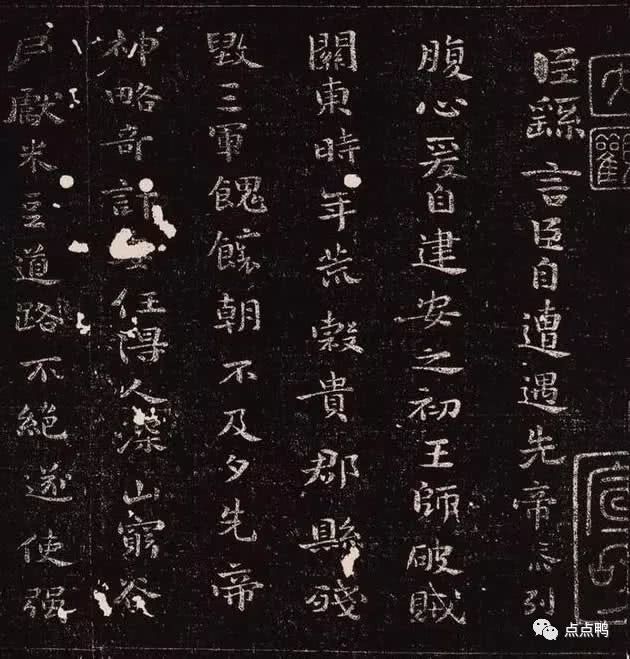 大觀
臣繇言臣自遭遇先帝忝列
腹心爰自建安之初王師破賊
關東時年荒穀貴郡縣殘
毀三軍餽饟朝不及夕先帝
神略奇計委任得人深山窮谷
民獻米豆道路不絕遂使强
点点鸭